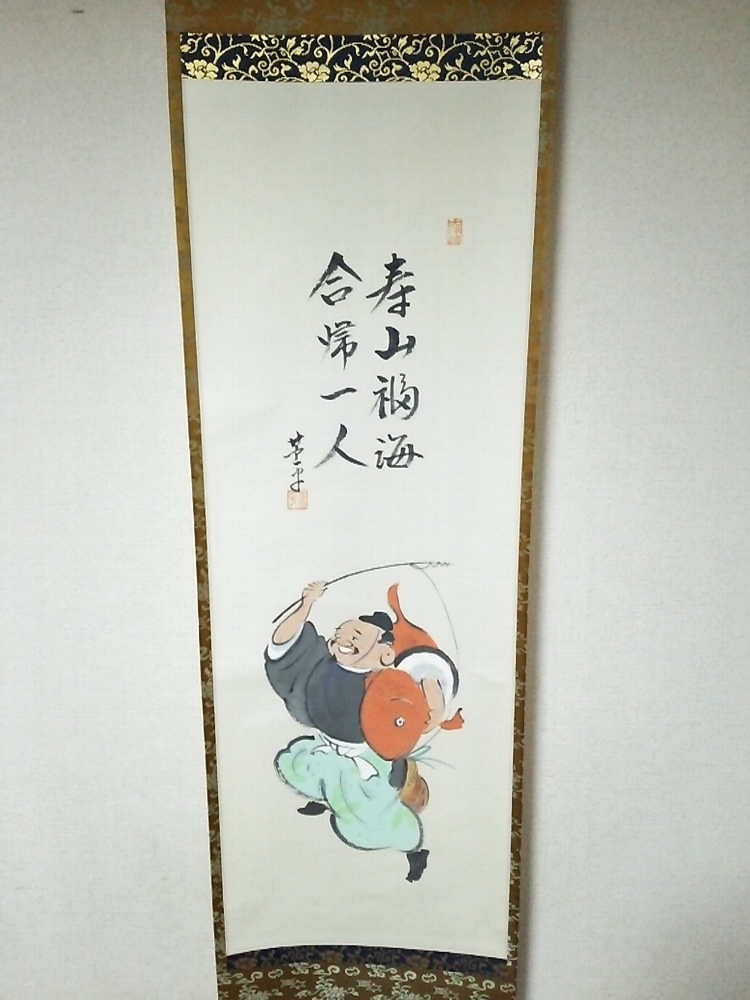 寿山福海
合帰一人